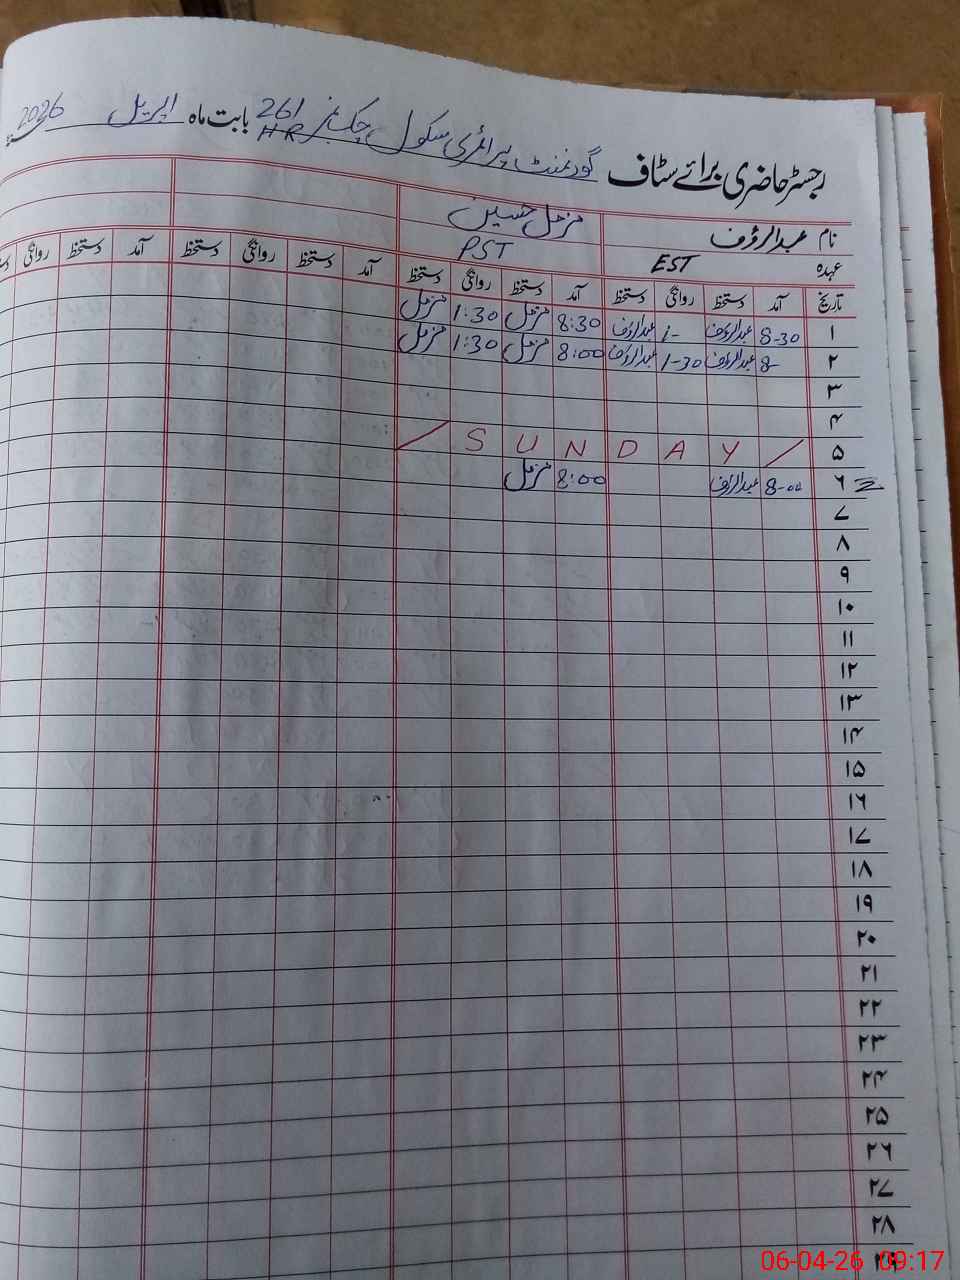 رجسٹر حاضری برائے سٹاف گورنمنٹ پرائمری سکول چک نمبر 261 HR بابت ماہ اپریل 2026
نام عبدالرؤف مزمل حسین
عہدہ EST PST
تاریخ آمد دستخط روانگی دستخط آمد دستخط روانگی دستخط آمد دستخط روانگی دستخط آمد دستخط روانگی
۱ 8-30 عبدالرؤف 1- عبدالرؤف 8:30 مزمل 1:30 مزمل
۲ 8- عبدالرؤف 1-30 عبدالرؤف 8:00 مزمل 1:30 مزمل
۳
۴
۵ / SUNDAY /
۶ 8-00 عبدالرؤف 8:00 مزمل
۷
۸
۹
۱۰
۱۱
۱۲
۱۳
۱۴
۱۵
۱۶
۱۷
۱۸
۱۹
۲۰
۲۱
۲۲
۲۳
۲۴
۲۵
۲۶
۲۷
۲۸
۲۹
06-04-26 09:17